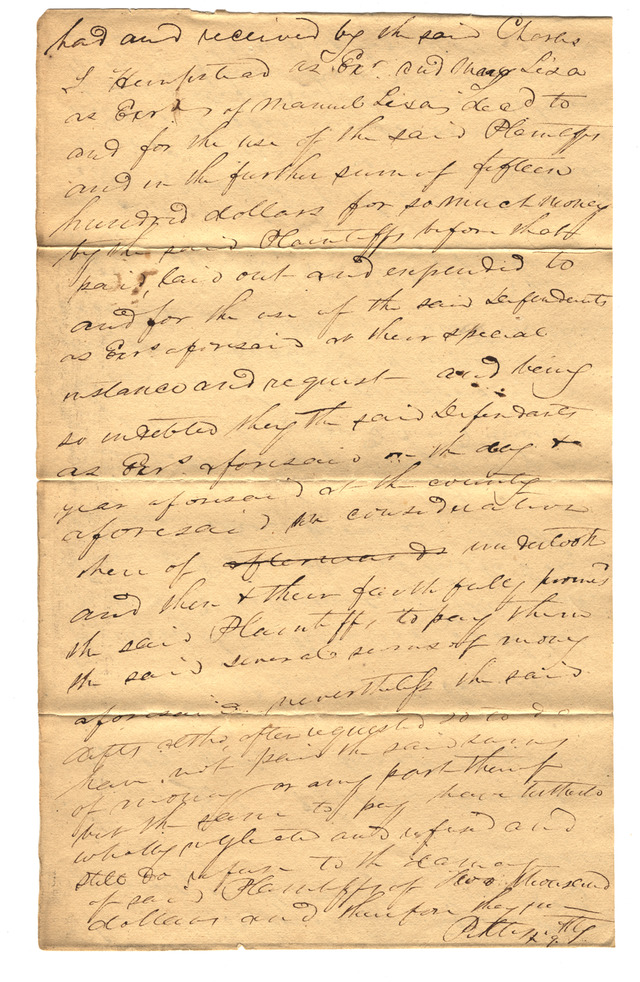 had and received by the said Charles
S Hempstead as Exr and Mary Lisa
as Exrx of Manuel Lisa decd to
and for the use of the said Plaintiffs
and in the further sum of fifteen
hundred dollars for so much money
by the said Plaintiffs before that
paid, laid out and expended to
and for the use of the said Defendants
as Exrs aforesaid at their special
instance and request and being
so indebted they the said Defendants
as Exrs aforesaid on the day &
year aforesaid at the county
aforesaid in consideration
there of afterwards undertook
and then & there faithfully promised
the said Plaintiffs to pay them
the said several sums of money
aforesaid nevertheless the said
defts altho, often requested so to do
have not paid the said sums
of money or any part thereof
but the same to pay have hitherto
wholly neglected and refused and
still do refuse to the damage
of said Plaintiffs of Two thousand
dollars and therefore they sue